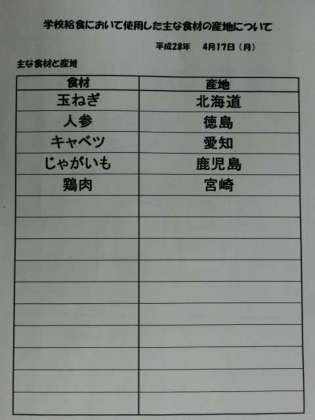 学校給食において使用した主な食材の産地について
平成28年 4月17日（月）
主な食材と産地
食材 産地
玉ねぎ 北海道
人参 徳島
キャベツ 愛知
じゃがいも 鹿児島
鶏肉 宮崎